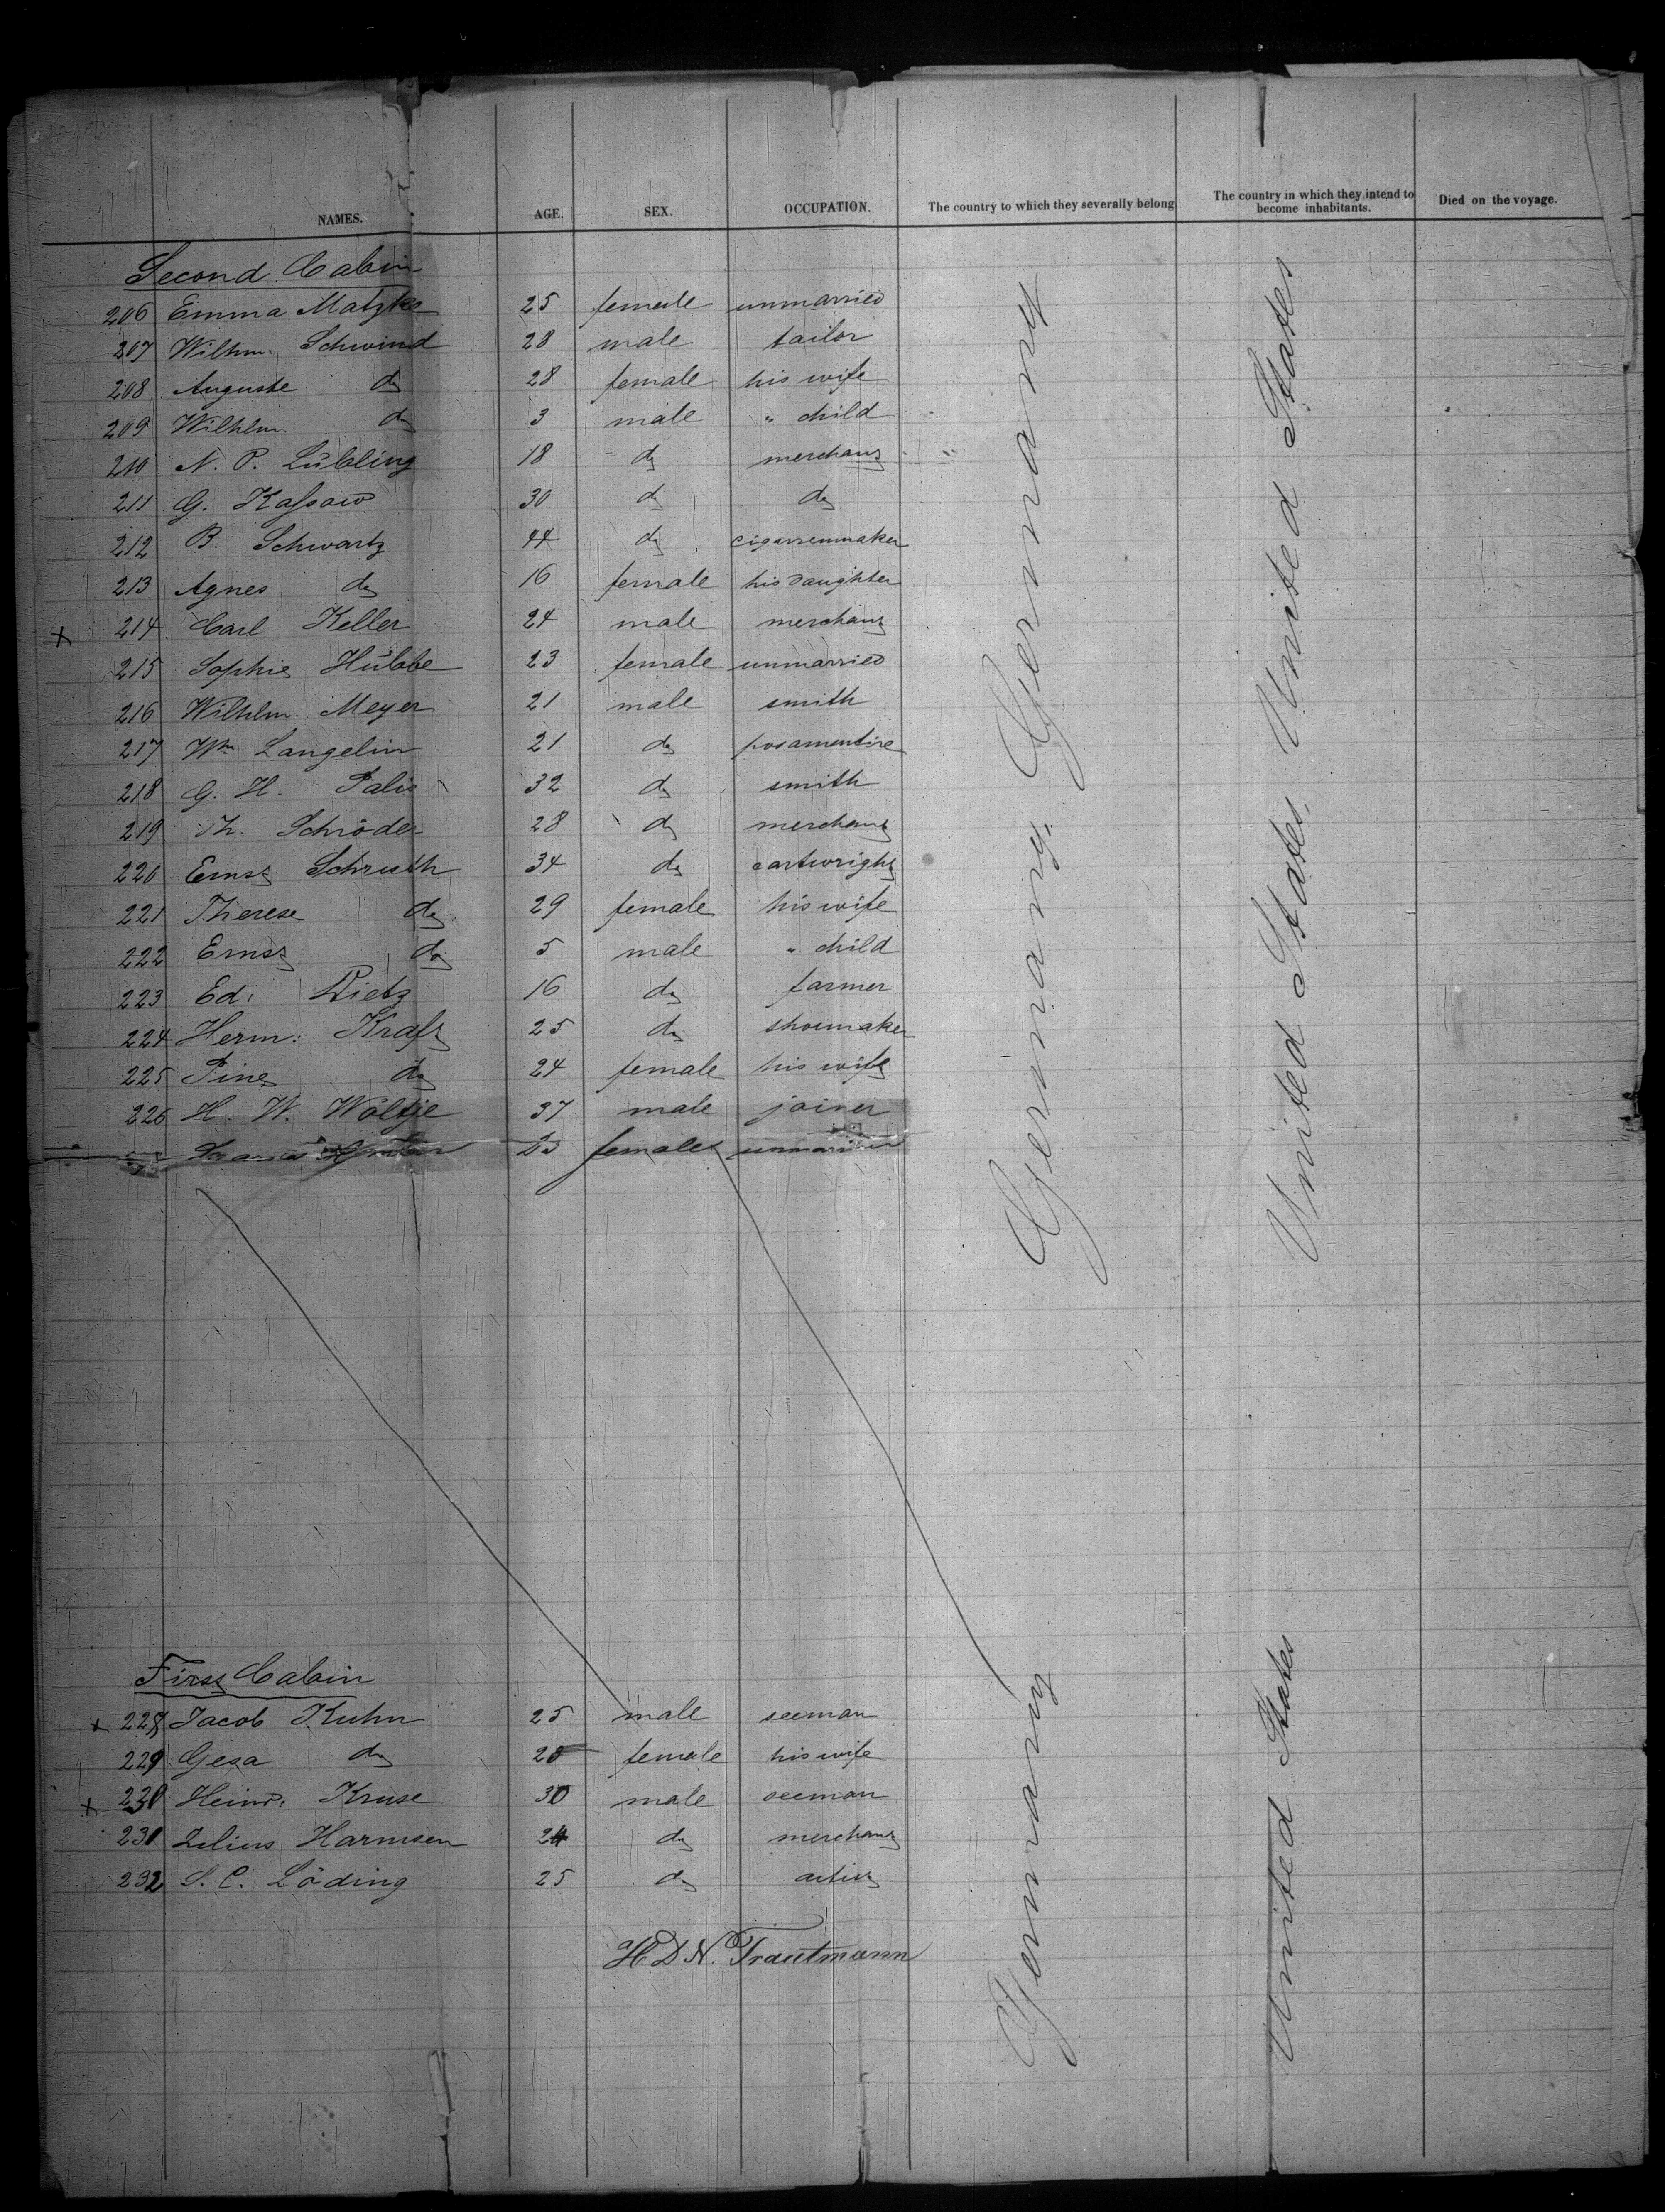 NAMES. AGE. SEX. OCCUPATION. The country to which they severally belong The country in which they intend to become inhabitants. Died on the voyage.
Second Cabin
206 Emma Matzke 25 female unmarried
207 Wilhm. Schwind 28 male tailor
208 Auguste do 28 female his wife
209 Wilhlm do 3 male " child
210 N. P. Lübling 18 do merchant
211 G. Kassaw 30 do do
212 B. Schwartz 44 do cigarrenmaker
213 Agnes do 16 female his daughter
x 214 Carl Keller 24 male merchant
215 Sophie Hübbe 23 female unmarried
216 Wilhlm. Meyer 21 male smith
217 Wm Langelin 21 do posamentire
218 G. H. Palis 32 do smith
219 Th. Schröder 28 do merchant
220 Ernst Schruth 34 do cartwright
221 Therese do 29 female his wife
222 Ernst do 5 male " child
223 Ed: Dietz 16 do farmer
224 Herm: Kraft 25 do shoemaker
225 Tine do 24 female his wife
226 H. W. Wöltje 37 male joiner
female unmarried
Germany, Germany
United States, United States
First Cabin
x 228 Jacob Kuhn 25 male seeman
229 Gesa do 28 female his wife
x 230 Heinr: Kruse 30 male seeman
231 Julius Harmsen 24 do merchant
232 S. C. Löding 25 do artist
Germany
United States
H D N. Trautmann